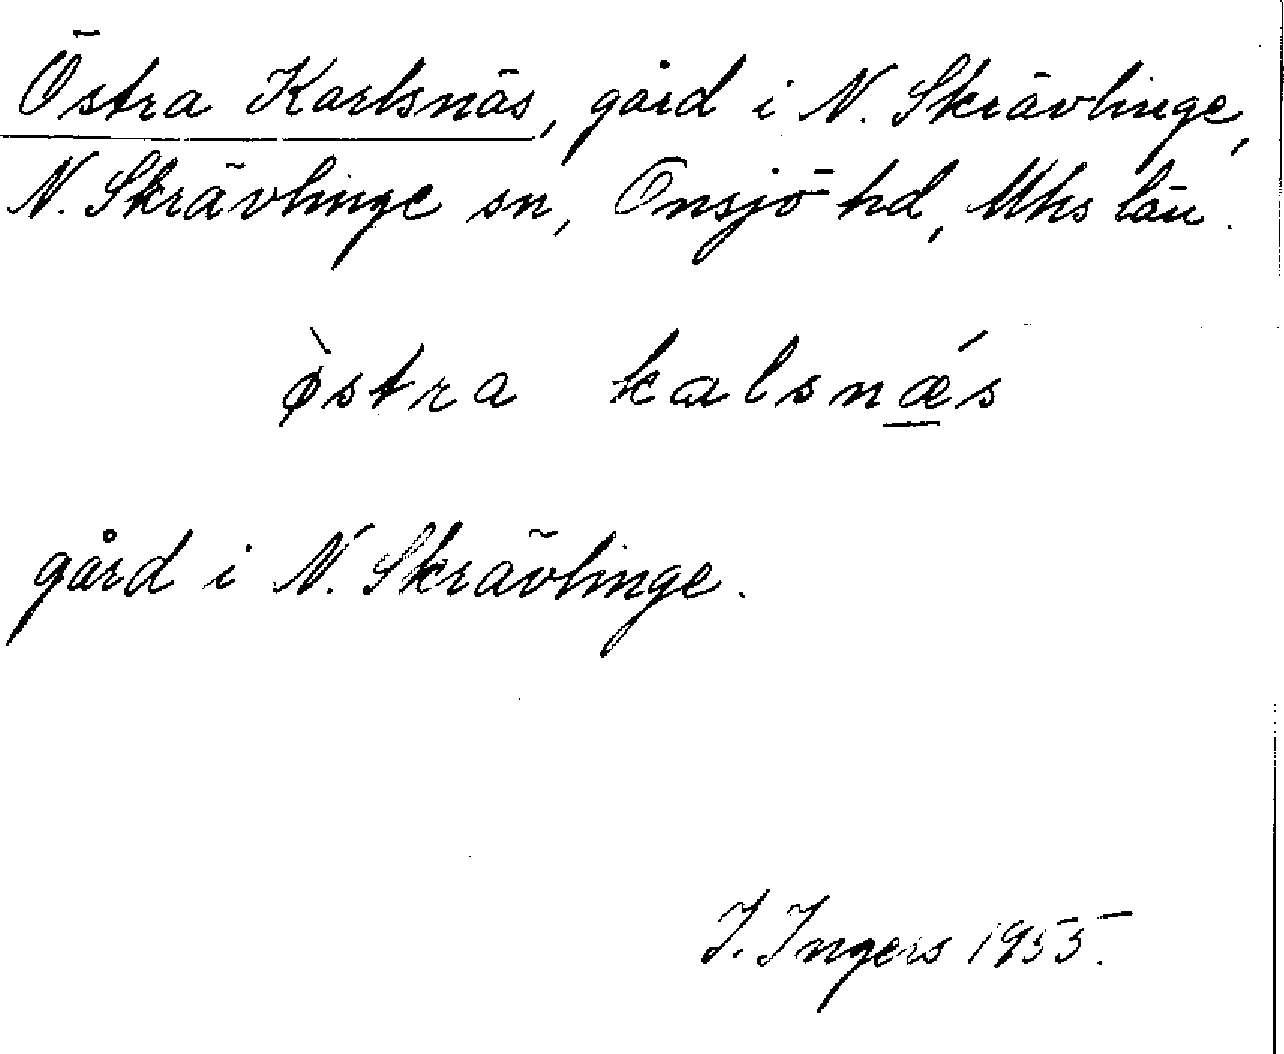 Östra Karlsnäs, gård i N. Skrävlinge,
N. Skrävlinge sn, Onsjö hd, Mhs län.
ø̀stra kalsnǽs
gård i N. Skrävlinge.
I. Ingers 1955.